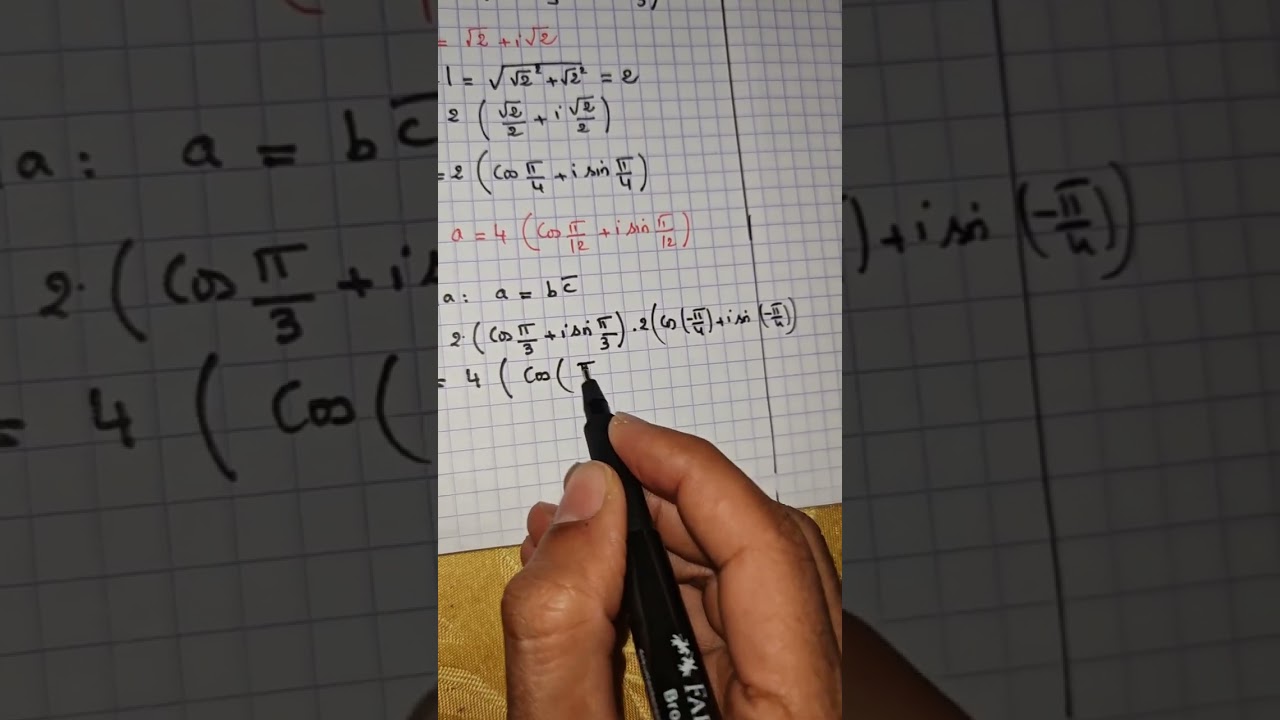 = √2 + i√2
| = √(√2² + √2²) = 2
2 ( √2/2 + i √2/2 )
= 2 ( Cos π/4 + i sin π/4 )
a = 4 ( Cos π/12 + i sin π/12 )
a : a = bc̅
2 · ( Cos π/3 + i sin π/3 ) · 2 ( Cos (-π/4) + i sin (-π/4) )
= 4 ( Cos ( π
FA
Bro